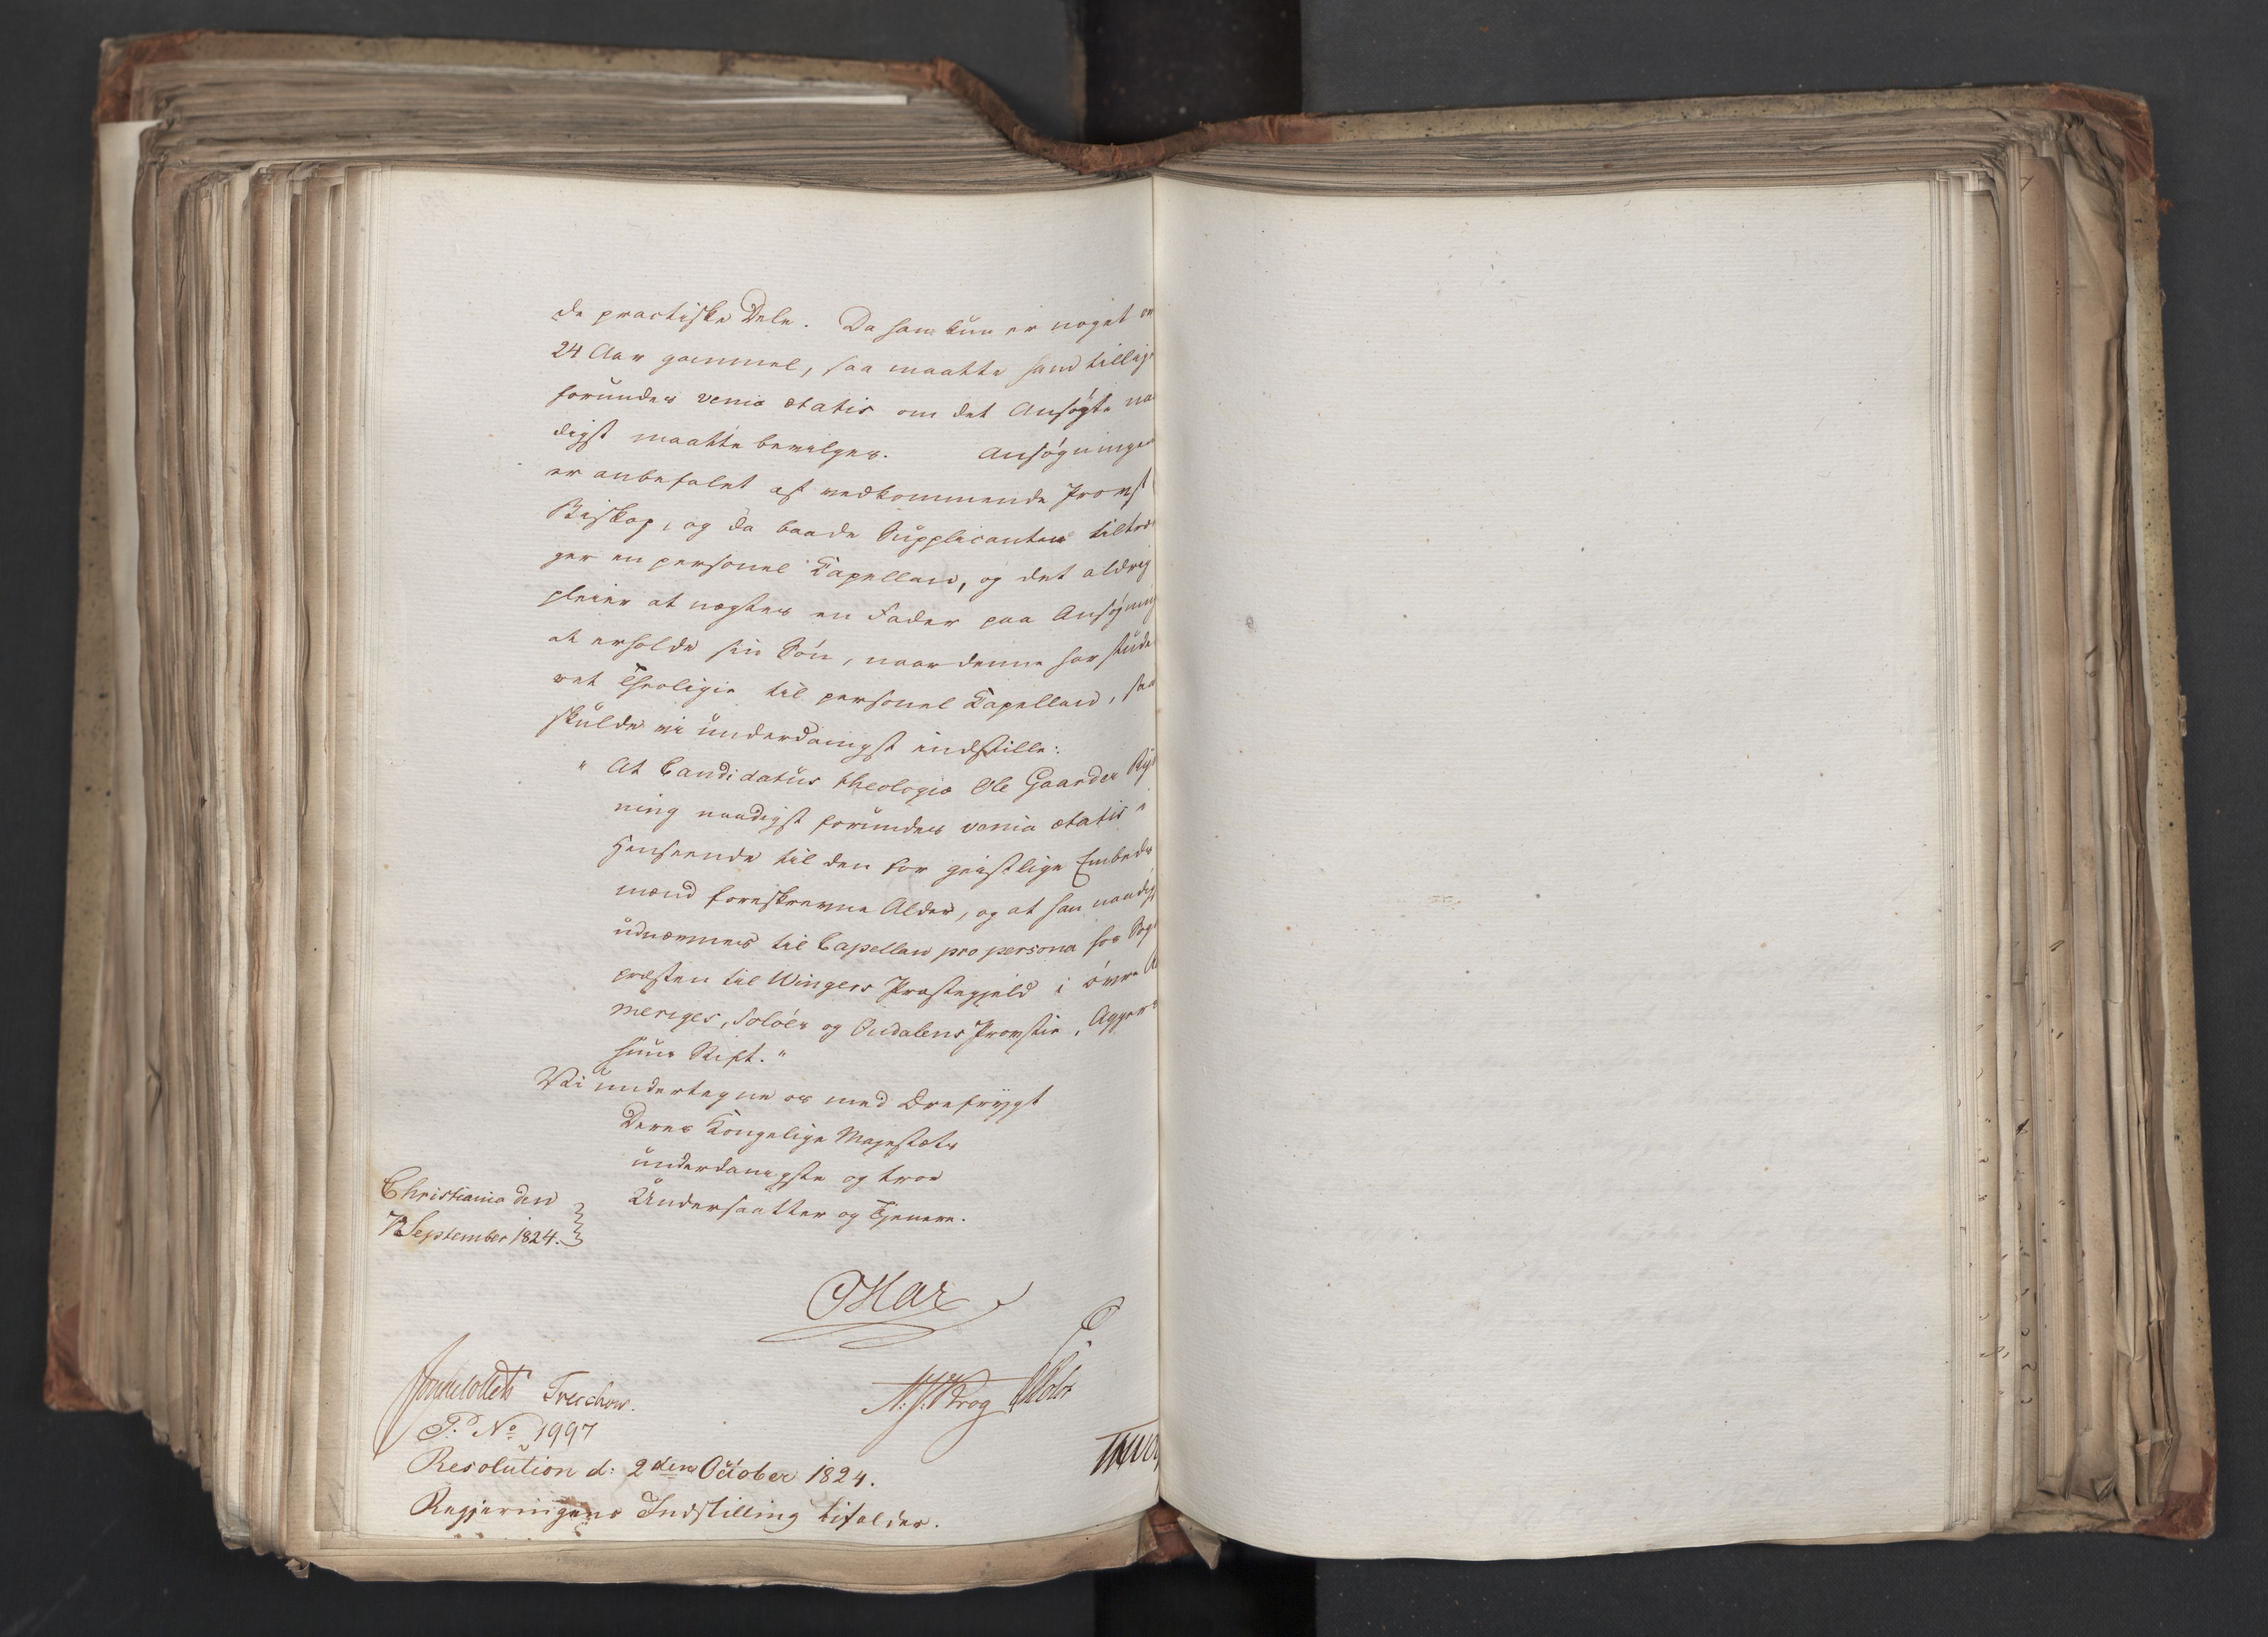 de practiske Dele. Da han kun er noget
24 Aar gammel, saa maatte ham tillige
forundes venia ætatis om det Ansøgte naa
digst maatte bevilges. Ansøgningen
er anbefalet af vedkommende Provst
Biskop, og da baade Supplicanten tiltræn
ger en personel Capellan, og det aldrig
pleier at nægtes en Fader paa Ansøgning
at erholde sin Søn, naar denne har stude
ret Theologie til personel Capellan, saa
skulde vi underdanigst indstille:
" At Candidatus theologiæ Ole Gaarder
ning naadigst forundes venia ætatis i
Henseende til den for geistlige Embeds
mænd foreskrevne Alder, og at han naadigst
udnævnes til Capellan pro persona hos Sogne
præsten til Wingers Præstegjeld i øvre
meriges, Soløers og Oudalens Provstie, Agger
huus Stift."
Vi undertegne os med Ærefrygt
Deres Kongelige Majestæts
underdanigste og troe
Undersaatter og Tjenere.
Christiania den
September 1824.
Sommerfeldt Treschow.
N. J. Krog
P. No 1997
Resolution d: 2den October 1824.
Regjeringens Indstilling bifaldes.